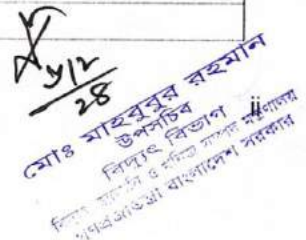 ২৪
মোঃ মাহবুবুর রহমান
উপসচিব
বিদ্যুৎ বিভাগ
ii
বিদ্যুৎ, জ্বালানি ও খনিজ সম্পদ মন্ত্রণালয়
গণপ্রজাতন্ত্রী বাংলাদেশ সরকার